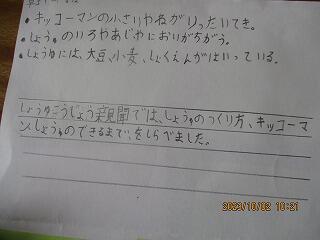 ・キッコーマンの小さいやねがりったいてき。
・しょうゆのいろやあじやにおいがちがう。
・しょうゆには、大豆、小麦、しょくえんがはいっている。
しょうゆこうじょう新聞では、しょうゆのつくり方、キッコーマ
ン、しょうゆのできるまで、をしらべました。
2023/10/02 10:21